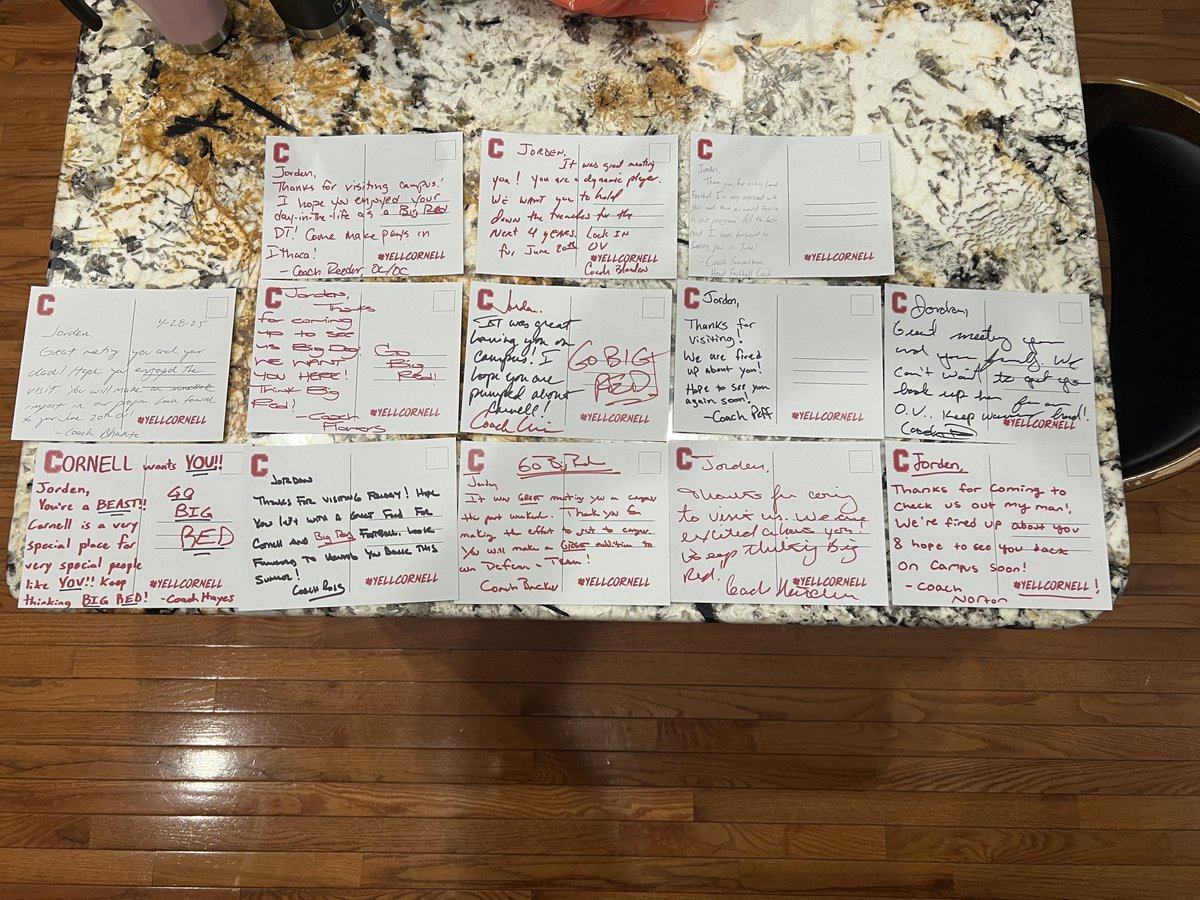 C
Jorden,
Thanks for visiting campus!
I hope you enjoyed your
day-in-the-life as a Big Red
DT! Come make plays in
Ithaca!
#YELLCORNELL
-Coach Reeder, OC/OC
C
JORDEN,
It was great meeting
you! You are a dynamic player.
We want you to hold
down the trenches for the
Next 4 years. Lock IN
for June 20th OV
#YELLCORNELL
Coach
C
Jorden,
Thank you for visiting
Football. I'm very impressed with
you and
in our program! All the best
and I look forward to
seeing you in June!
- Coach
Head Football Coach
#YELLCORNELL
C
4-28-25
Jorden,
Great meeting you and your
dad! Hope you enjoyed the
visit. You will make an immediate
impact in our program. Look forward
to your June 20th OV!
#YELLCORNELL
- Coach
C
Jorden,
Thanks
for coming
up to see
us Big Dog
WE WANT
YOU HERE!
Think Big
Red!
GO
Big
Red!
-Coach
#YELLCORNELL
C
Jorden,
It was great
having you on
campus! I
hope you are
pumped about
Cornell!
GO BIG
RED
Coach
#YELLCORNELL
C
Jorden,
Thanks for
visiting!
We are fired
up about you!
Hope to see you
again soon!
-Coach
#YELLCORNELL
C
Jorden,
Great meeting you
and your family. We
Can't wait to get you
back up here for an
O.V.. Keep working hard!
Coach
#YELLCORNELL
CORNELL wants YOU!!
Jorden,
You're a BEAST!!
Cornell is a very
special place for
very special people
like YOU!! Keep
thinking BIG RED! -Coach Hayes
GO
BIG
RED
#YELLCORNELL
C
JORDON
THANKS FOR VISITING FRIDAY! HOPE
YOU LEFT WITH A GREAT FEEL FOR
CORNELL AND Big Red FOOTBALL. LOOK
FORWARD TO HAVING YOU BACK THIS
SUMMER!
COACH
#YELLCORNELL
C
GO Big Red
Jorden,
It was GREAT meeting you on campus
this past weekend. Thank you for
making the effort to get to campus.
You will make a GREAT addition to
our Defense & Team!
Coach
#YELLCORNELL
C
Jorden,
Thanks for coming
to visit us. We are
excited about you.
Keep thinking Big
Red.
Coach
#YELLCORNELL
C
Jorden,
Thanks for coming to
check us out my man!
We're fired up about you
& hope to see you back
on Campus soon!
-Coach
Norton
#YELLCORNELL!